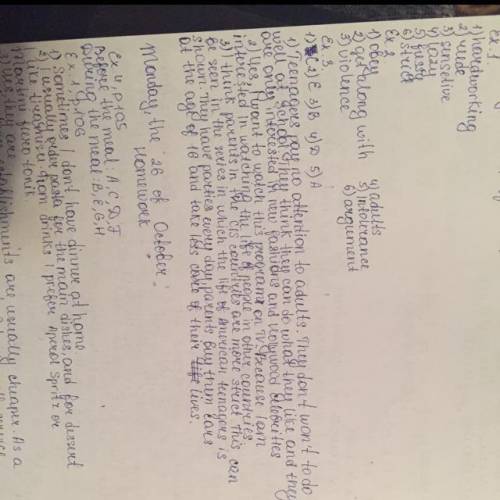 Ex 1
1) hardworking
2) rude
3) sensetive
4) lazy
5) fussy
6) strict
Ex 2
1) obey
2) get along with
3) violence
4) adults
5) intolerance
6) argument
Ex 3
1) C 2) E 3) B 4) D 5) A
1) Teenagers pay no attention to adults. They don't won't to do
well at school. They think they can do what they like and they
are only interested in new fashions and Hollywood celebrities
2) Yes, I want to watch this programe on TV, because I am
interested in watching the life of people in other countries
3) I think parents in the CIS countries are more strict this can
be seen in the series in which the life of American teenagers is
shown. They have parties every day, parents buy them cars
at the age of 16 and take less care of their lives.
Monday, the 26 of October.
Homework
Ex 4, p. 105
Before the meal A, C, D, F
During the meal B, E, G, H
Ex 1, p. 106
1) Sometimes I don't have dinner at home
2) I usually order pasta for the main dishes, and for dessert
like tiramisu. From drinks I prefer Aperol Spritz or
Martini fiero tonic.
3) Yes, they are
establishments are usually cheaper. As a